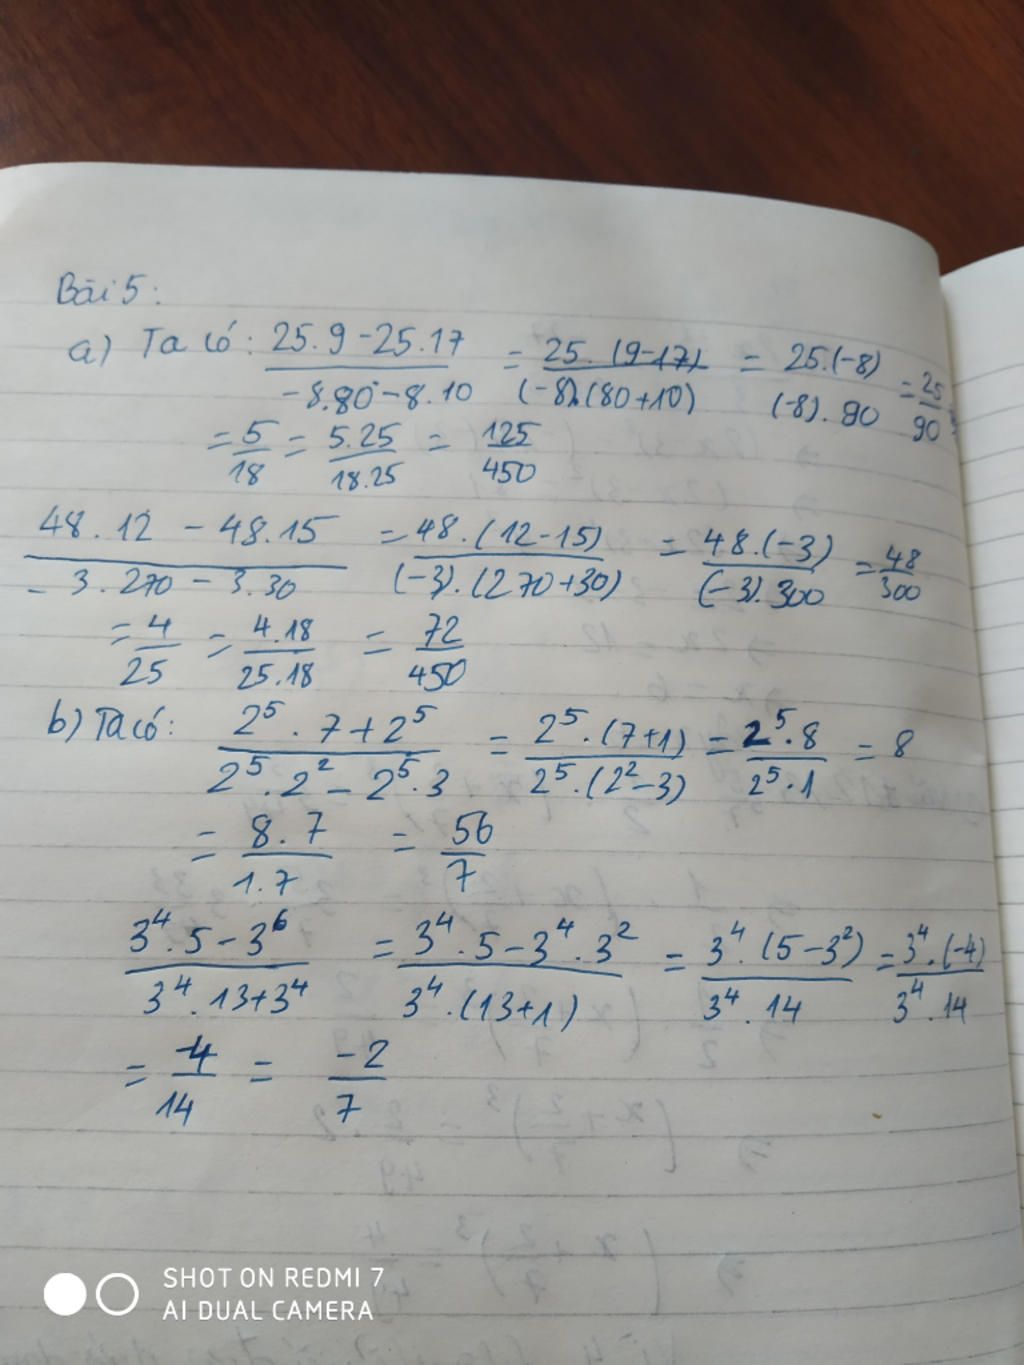 Bài 5:
a) Ta có: (25.9-25.17)/(-8.80-8.10) = (25.(9-17))/((-8).(80+10)) = (25.(-8))/((-8).90) = 25/90
= 5/18 = (5.25)/(18.25) = 125/450
(48.12 - 48.15)/(-3.270 - 3.30) = (48.(12-15))/((-3).(270+30)) = (48.(-3))/((-3).300) = 48/300
= 4/25 = (4.18)/(25.18) = 72/450
b) Ta có: (2⁵.7+2⁵)/(2⁵.2²-2⁵.3) = (2⁵.(7+1))/(2⁵.(2²-3)) = (2⁵.8)/(2⁵.1) = 8
= (8.7)/(1.7) = 56/7
(3⁴.5-3⁶)/(3⁴.13+3⁴) = (3⁴.5-3⁴.3²)/(3⁴.(13+1)) = (3⁴.(5-3²))/(3⁴.14) = (3⁴.(-4))/(3⁴.14)
= -4/14 = -2/7
SHOT ON REDMI 7
AI DUAL CAMERA